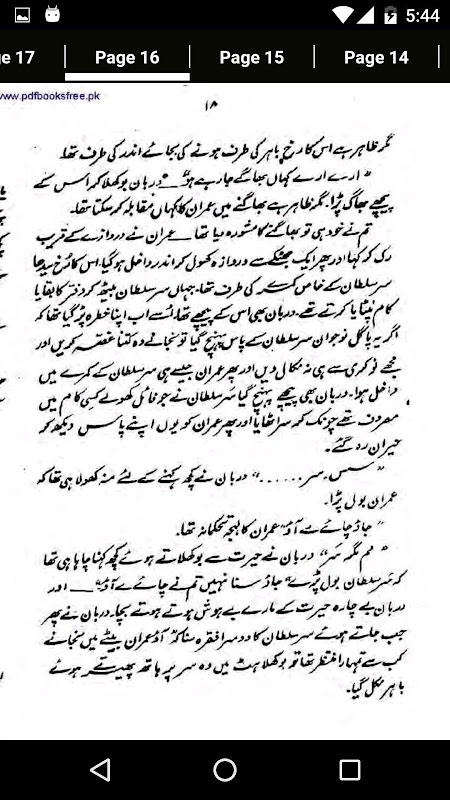 5:44
Page 17
Page 16
Page 15
Page 14
www.pdfbooksfree.pk
۱۸
مگر ظاہر ہے اس کا رخ باہر کی طرف ہونے کی بجائے اندر کی طرف تھا۔
"ارے ارے کہاں بھاگے جا رہے ہو" ـــ دربان بوکھلا کر اس کے
پیچھے بھاگ پڑا۔ مگر ظاہر ہے بھاگنے میں عمران کا کہاں مقابلہ کر سکتا تھا۔
تم نے خود ہی تو بھاگنے کا مشورہ دیا تھا ـــ عمران نے دروازے کے قریب
رک کر کہا اور پھر ایک جھٹکے سے دروازہ کھول کر اندر داخل ہو گیا۔ اس کا رخ سیدھا
سر سلطان کے خاص کمرے کی طرف تھا۔ جہاں سر سلطان بیٹھ کر دفتر کا بقایا
کام نپٹایا کرتے تھے۔ دربان بھی اس کے پیچھے تھا۔ اسے اب اپنا خطرہ پڑ گیا تھا کہ
اگر یہ پاگل نوجوان سر سلطان کے پاس پہنچ گیا تو نجانے وہ کتنا غصہ کریں اور
مجھے نوکری سے ہی نہ نکال دیں اور پھر عمران جیسے ہی سر سلطان کے کمرے میں
داخل ہوا۔ دربان بھی پیچھے پہنچ گیا سر سلطان نے جو فائل کھولے کسی کام میں
مصروف تھے چونک کر سر اٹھایا اور پھر عمران کو یوں اپنے پاس دیکھ کر
حیران رہ گئے۔
"سس۔ سر ......" دربان نے کچھ کہنے کے لئے منہ کھولا ہی تھا کہ
عمران بول پڑا۔
"جاؤ چائے لے آؤ" عمران کا لہجہ تحکمانہ تھا۔
"مم مگر سر" دربان نے حیرت سے بوکھلاتے ہوئے کچھ کہنا چاہا ہی تھا
کہ سر سلطان بول پڑے "جاؤ سنا نہیں تم نے چائے لے آؤ" ـــ اور
دربان بے چارہ حیرت کے مارے بے ہوش ہوتے ہوتے بچا۔ دربان نے پھر
جب جاتے ہوئے سر سلطان کا دوسرا فقرہ سنا کہ آؤ عمران بیٹے میں نجانے
کب سے تمہارا منتظر تھا تو بوکھلاہٹ میں وہ سر پر ہاتھ پھیرتے ہوئے
باہر نکل گیا۔